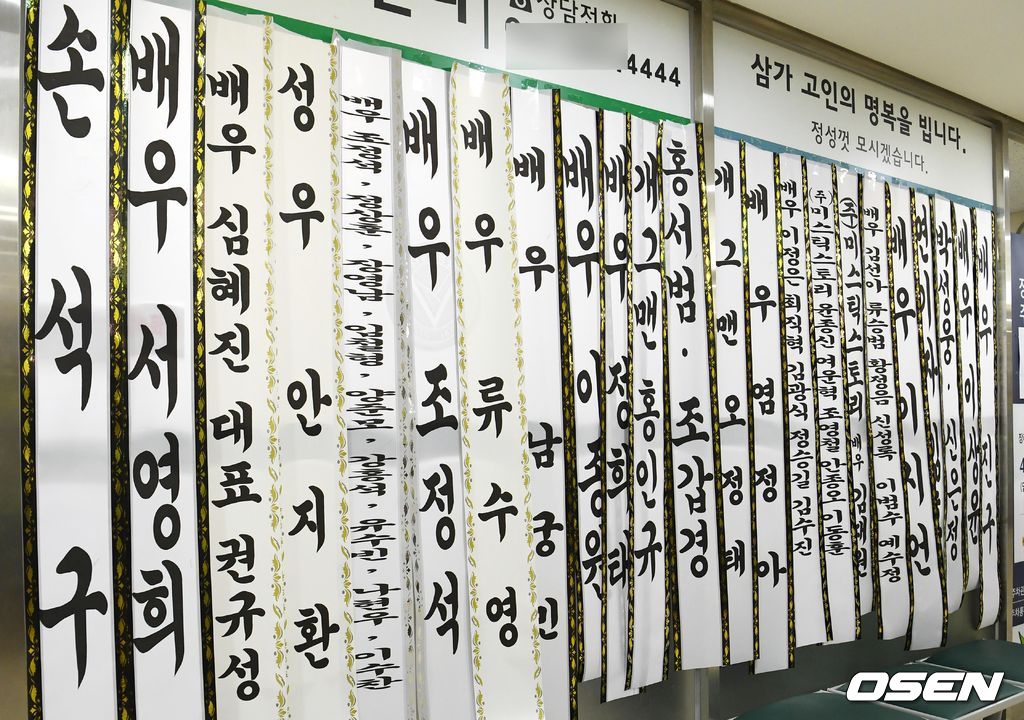 상담전화
4444
삼가 고인의 명복을 빕니다.
정성껏 모시겠습니다.
손석구
배우 서영희
배우 심혜진 대표 권규성
성우 안지환
배우 조정석
배우 류수영
배우 남궁민
배우 이종원
배우 정희태
개그맨 홍인규
홍서범 · 조갑경
개그맨 오정태
배우 염정아
배우 이정은 최직혁 김광식 정승길 김수진
(주)미스틱스토리 윤종신 여운혁 조영철 안종오 기동훈
(주)미스틱스토리 배우 김태원
배우 김선아 류승범 황정음 신성록 이범수 예수정
배우 이시언
박성웅 · 신은정
배우 이상윤
배우 진구
OSEN